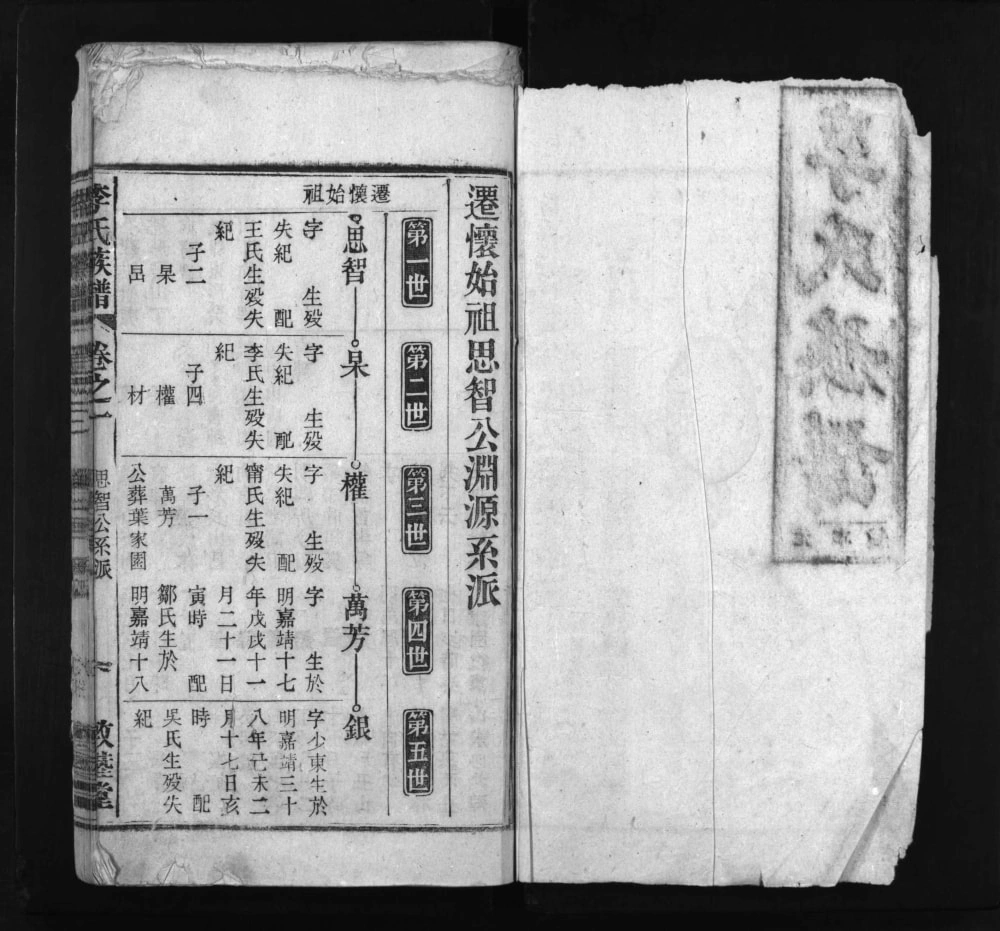 遷懷始祖思智公淵源系派
第一世
第二世
第三世
第四世
第五世
遷懷始祖
思智
杲
權
萬芳
銀
字 生殁
失紀 配
王氏生殁失
紀
子二
杲
字 生殁
失紀 配
李氏生殁失
紀
子四
權
材
字 生殁
失紀 配
甯氏生殁失
紀
子一
萬芳
公葬葉家園
字 生於
明嘉靖十七
年戊戌十一
月二十一日
寅時 配
鄒氏生於
明嘉靖十八
字少東生於
明嘉靖三十
八年己未二
月十七日亥
時 配
吳氏生殁失
紀
李氏族譜
卷之一
思智公系派
敦睦堂